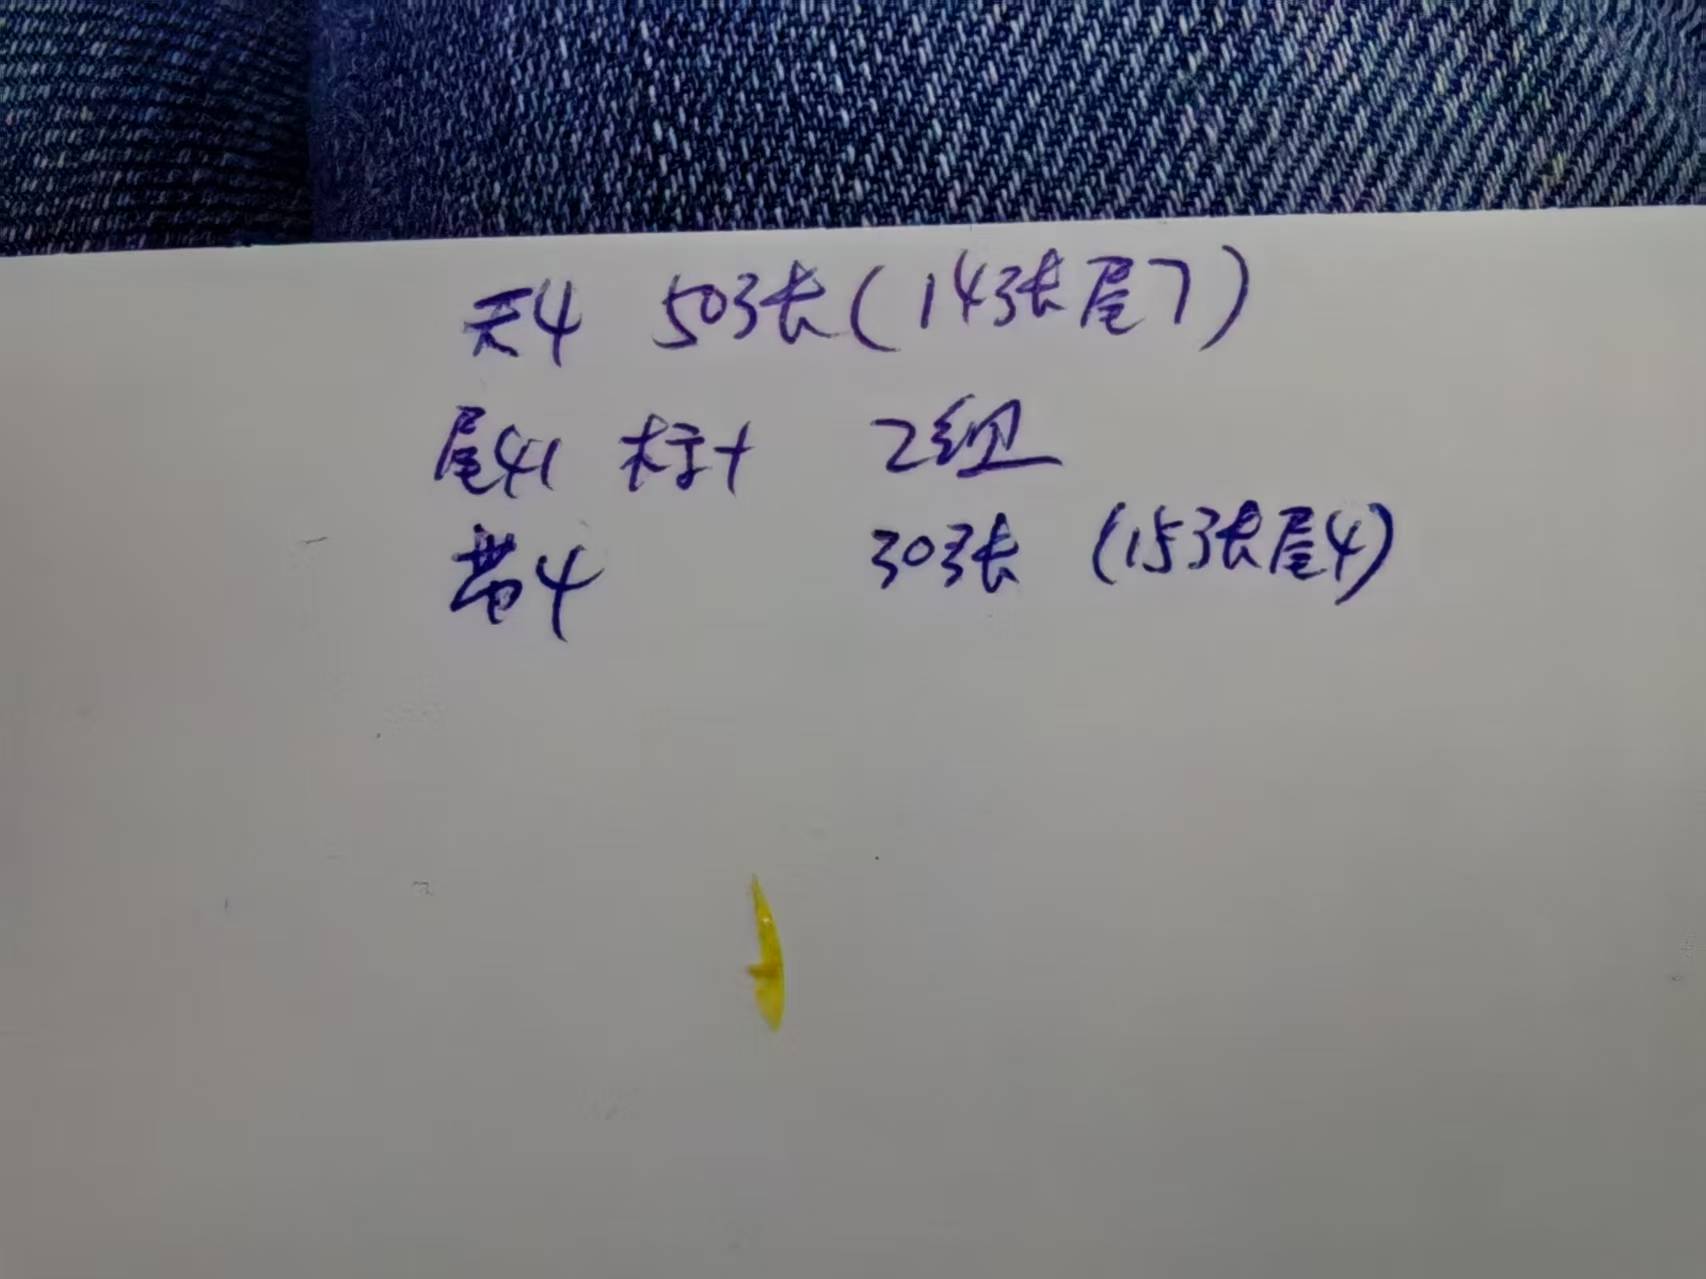 天4 50张(14张尾7)
尾41 标十 2组
带4 30张 (15张尾4)